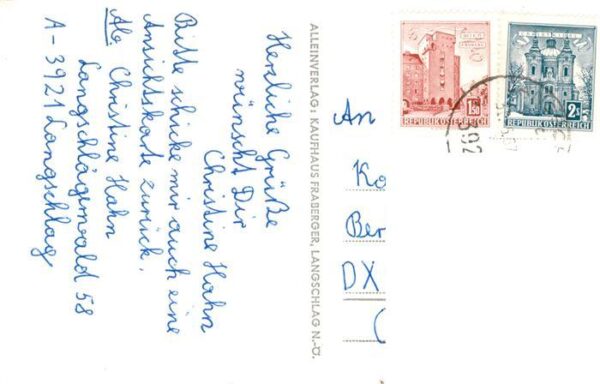 Herzliche Grüße
wünscht Dir
Christine Hahn
Bitte schicke mir auch eine
Ansichtskarte zurück.
Ab: Christine Hahn
Langschlägerwald 58
A-3921 Langschlag
ALLEINVERLAG: KAUFHAUS FRABERGER, LANGSCHLAG N.-Ö.
1.50
REPUBLIK ÖSTERREICH
CHRISTKINDL
2S
REPUBLIK ÖSTERREICH
392
An
Ko
Ber
DX
(